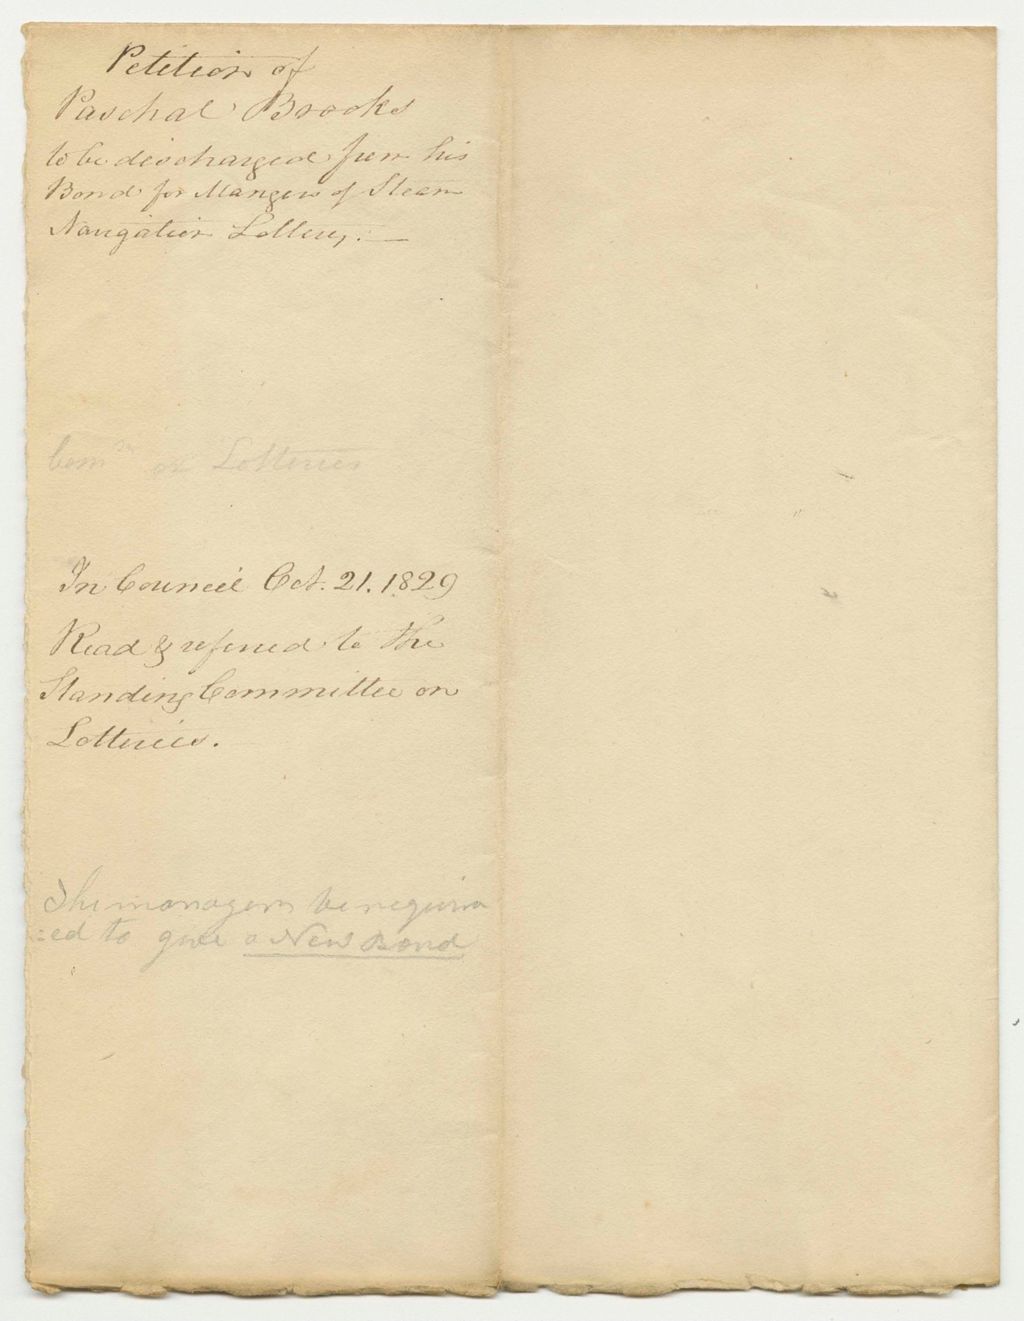 Petition of
Paschal Brooks
to be discharged from his
Bond for Mangers of Steam
Navigation Lottery. —
Com^tee on Lotteries
In Council Oct. 21. 1829
Read & referred to the
Standing Committee on
Lotteries.
The managers be requir
=ed to give a New Bond